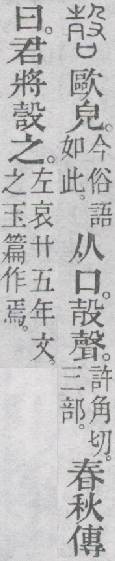 嗀歐皃。今俗語如此。从口。㱿聲。許角切。三部。春秋傳
曰。君將嗀之。左哀廿五年文。之玉篇作焉。